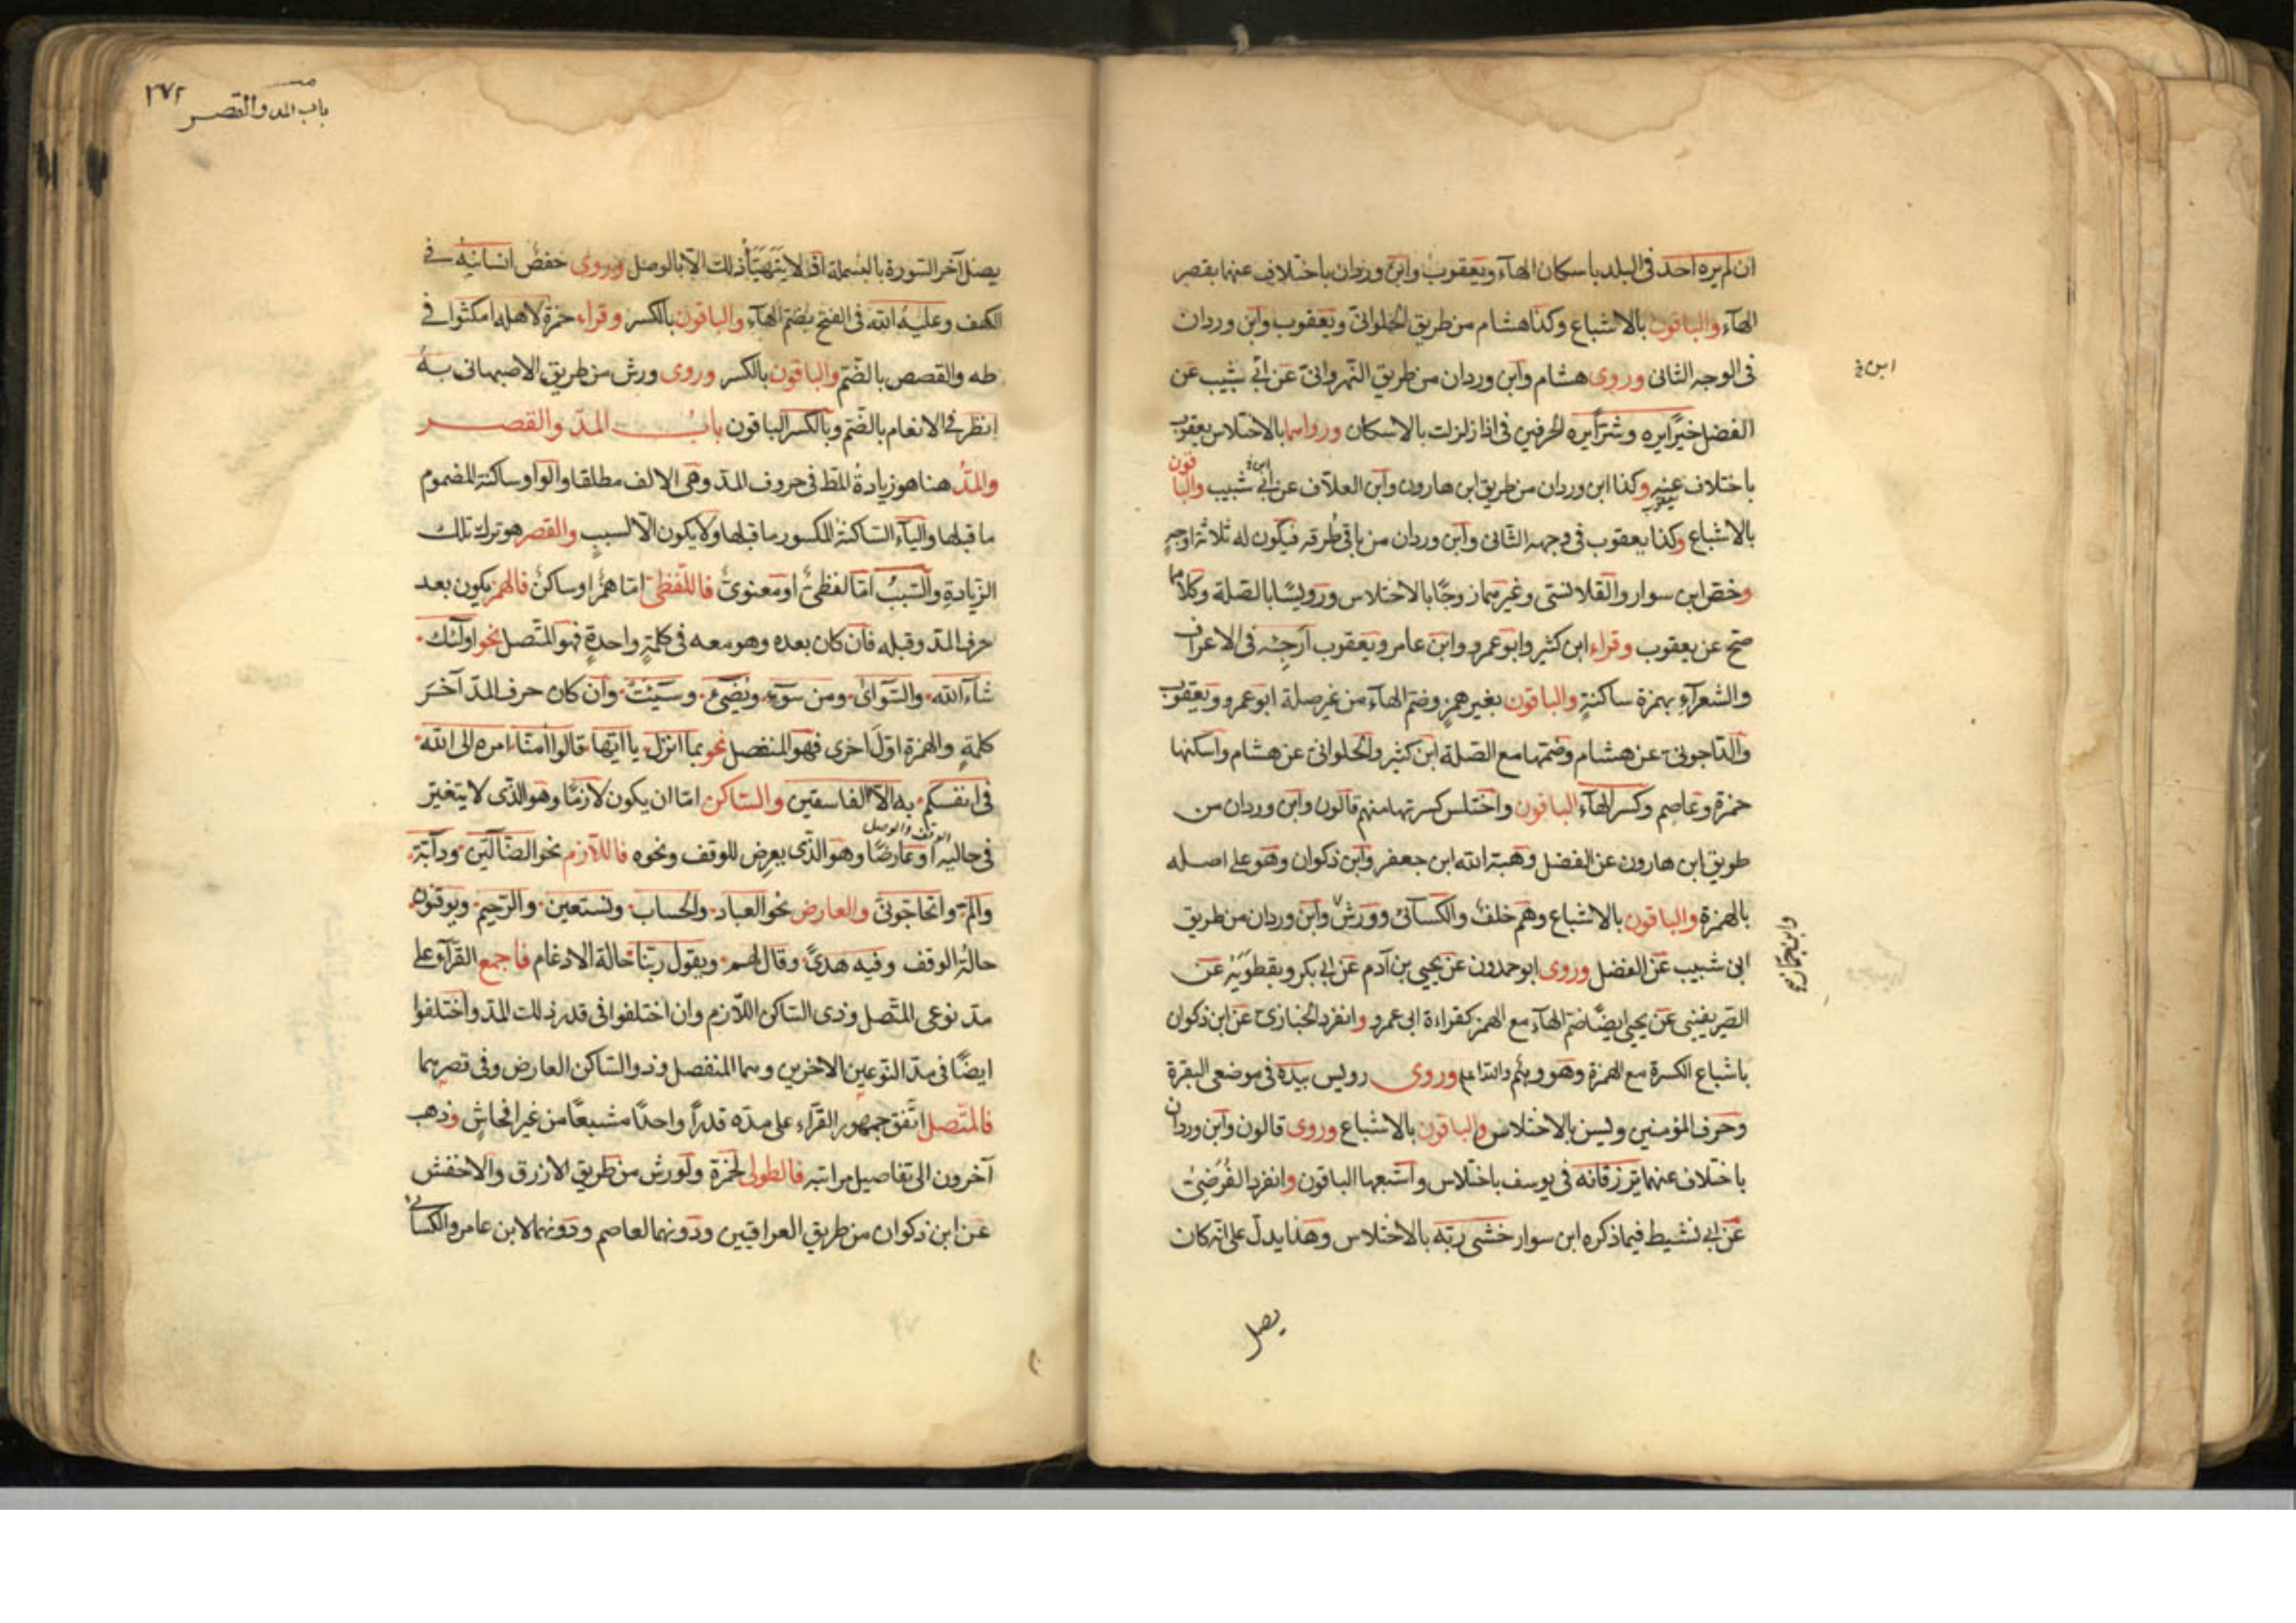 ان لم يره احد في البلد باسكان الهآء ويعقوب وابن وردان باختلاف عنهما بقصر
الهآء والباقون بالاشباع وكذا هشام من طريق الحلواني ويعقوب وابن وردان
في الوجه الثاني وروى هشام وابن وردان من طريق النهرواني عن ابي شبيب عن
ابن
الفضل خيرًا يره وشرًا يره الحرفين في اذا زلزلت بالاسكان ورواهما بالاختلاس يعقوب
باختلاف عنه وكذا ابن وردان من طريق ابن هارون وابن العلاف عن ابن ابي شبيب والباقون
بالاشباع وكذا يعقوب في وجهه الثاني وابن وردان من باقي طرقه فيكون له ثلاثة اوجه
وخص ابن سوار والقلانسي وغيرهما روحًا بالاختلاس ورويسًا بالصلة وكلاهما
صح عن يعقوب وقراء ابن كثير وابو عمرو وابن عامر ويعقوب ارجئه في الاعراف
والشعرآء بهمزة ساكنةٍ والباقون بغير همزٍ وضم الهآء من غير صلة ابو عمرو ويعقوب
والداجوني عن هشام وضمها مع الصلة ابن كثير والحلواني عن هشام واسكنها
حمزة وعاصم وكسر الهآء الباقون واختلس كسرتها منهم قالون وابن وردان من
طريق ابن هارون عن الفضل وهبة الله ابن جعفر وابن ذكوان وهو على اصله
بالهمزة والباقون بالاشباع وهم خلف والكسائي وورش وابن وردان من طريق
وابن جماز
ابن شبيب عن الفضل وروى ابو حمدون عن يحيى بن آدم عن ابي بكر ونفطويه عن
الصريفيني عن يحيى ايضًا ضم الهآء مع الهمز كقراءة ابي عمرو وانفرد الخبازي عن ابن ذكوان
باشباع الكسرة مع الهمزة وهو وهم والله اعلم وروى رويس بيده في موضعي البقرة
وحرف المؤمنين ويس بالاختلاس والباقون بالاشباع وروى قالون وابن وردان
باختلاف عنهما ترزقانه في يوسف باختلاس واشبعها الباقون وانفرد الفرضي
عن ابي نشيط فيما ذكره ابن سوار خشي ربه بالاختلاس وهذا يدل على انه كان
يصل
باب المد والقصر ٢٧٢
يصل آخر السورة بالبسملة اذ لا يتهيأ ذلك الا بالوصل وروى حفص انسانيه في
الكهف وعليه الله في الفتح بضم الهآء والباقون بالكسر وقراء حمزة لاهله امكثوا في
طه والقصص بالضم والباقون بالكسر وروى ورش من طريق الاصبهاني به
انظر في الانعام بالضم وبالكسر الباقون باب المد والقصر
والمد هنا هو زيادة المط في حروف المد وهي الالف مطلقا والواو ساكنة المضموم
ما قبلها واليآء الساكنة المكسور ما قبلها ولا يكون الا لسبب والقصر هو ترك تلك
الزيادة والسبب اما لفظي او معنوي فاللفظي اما همز او ساكن فالهمز يكون بعد
حرف المد وقبله فان كان بعده وهو معه في كلمةٍ واحدةٍ فهو المتصل نحو اولئك
شآء الله والسوآى ومن سوء ويضئ وسيئت وان كان حرف المد آخر
كلمةٍ والهمزة اول اخرى فهو المنفصل نحو بما انزل يا ايها قالوا آمنا امره الى الله
في انفسكم به الا الفاسقين والساكن اما ان يكون لازمًا وهو الذي لا يتغير
في حاليه الوقف والوصل او عارضًا وهو الذي يعرض للوقف ونحوه فاللازم نحو الضآلين ودآبة
والم واتحاجوني والعارض نحو العباد والحساب ونستعين والرحيم ويوقنون
حالة الوقف وفيه هدى وقال لهم ويقول ربنا حالة الادغام فاجمع القرآء على
مد نوعي المتصل وذي الساكن اللازم وان اختلفوا في قدر ذلك المد واختلفوا
ايضًا في مد النوعين الاخرين وهما المنفصل وذو الساكن العارض وفي قصرهما
فالمتصل اتفق جمهور القرآء على مده قدرًا واحدًا مشبعًا من غير افحاش وذهب
آخرون الى تفاصيل مراتبه فالطولى لحمزة ولورش من طريق الازرق والاخفش
عن ابن ذكوان من طريق العراقيين ودونهما لعاصم ودونهما لابن عامر والكسائي